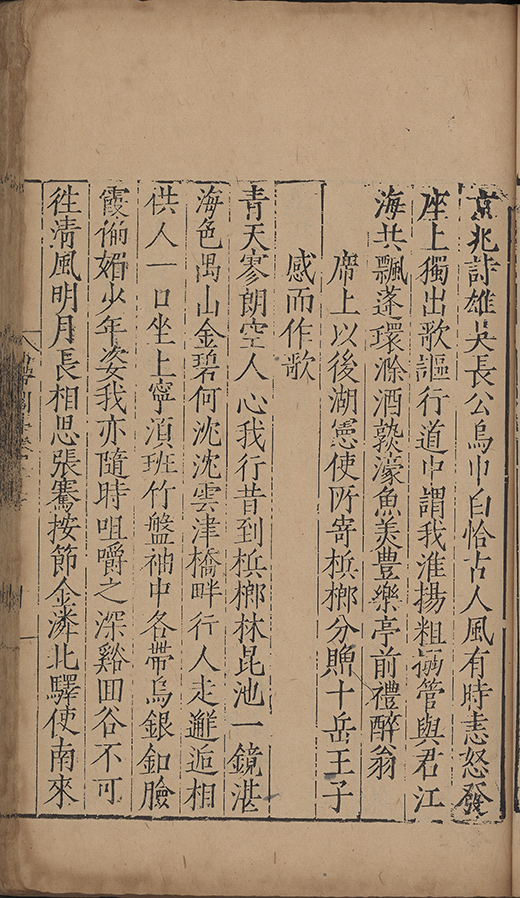 京兆詩雄吳長公烏巾白恰古人風有時恚怒發
座上獨出歌謳行道中謂我淮揚粗搦管與君江
海共飄蓬環滁酒熟濠魚美豊樂亭前禮醉翁
席上以後湖憲使所寄梹榔分贈十岳王子
感而作歌
青天寥朗空人心我行昔到梹榔林昆池一鏡湛
海色禺山金碧何沈沈雲津橋畔行人走邂逅相
供人一口坐上寧湏班竹盤袖中各帶烏銀釦臉
霞偷媚少年姿我亦隨時咀嚼之深谿囬谷不可
徃清風明月長相思張騫按節金潾北驛使南來